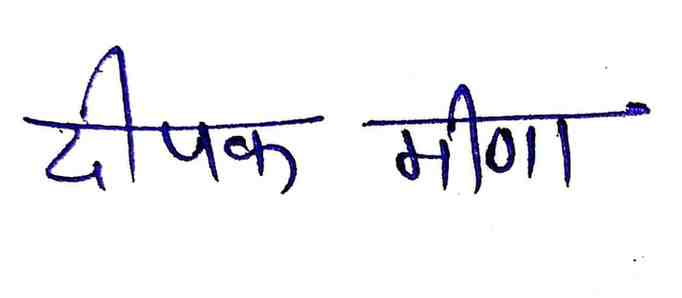 दीपक मीणा